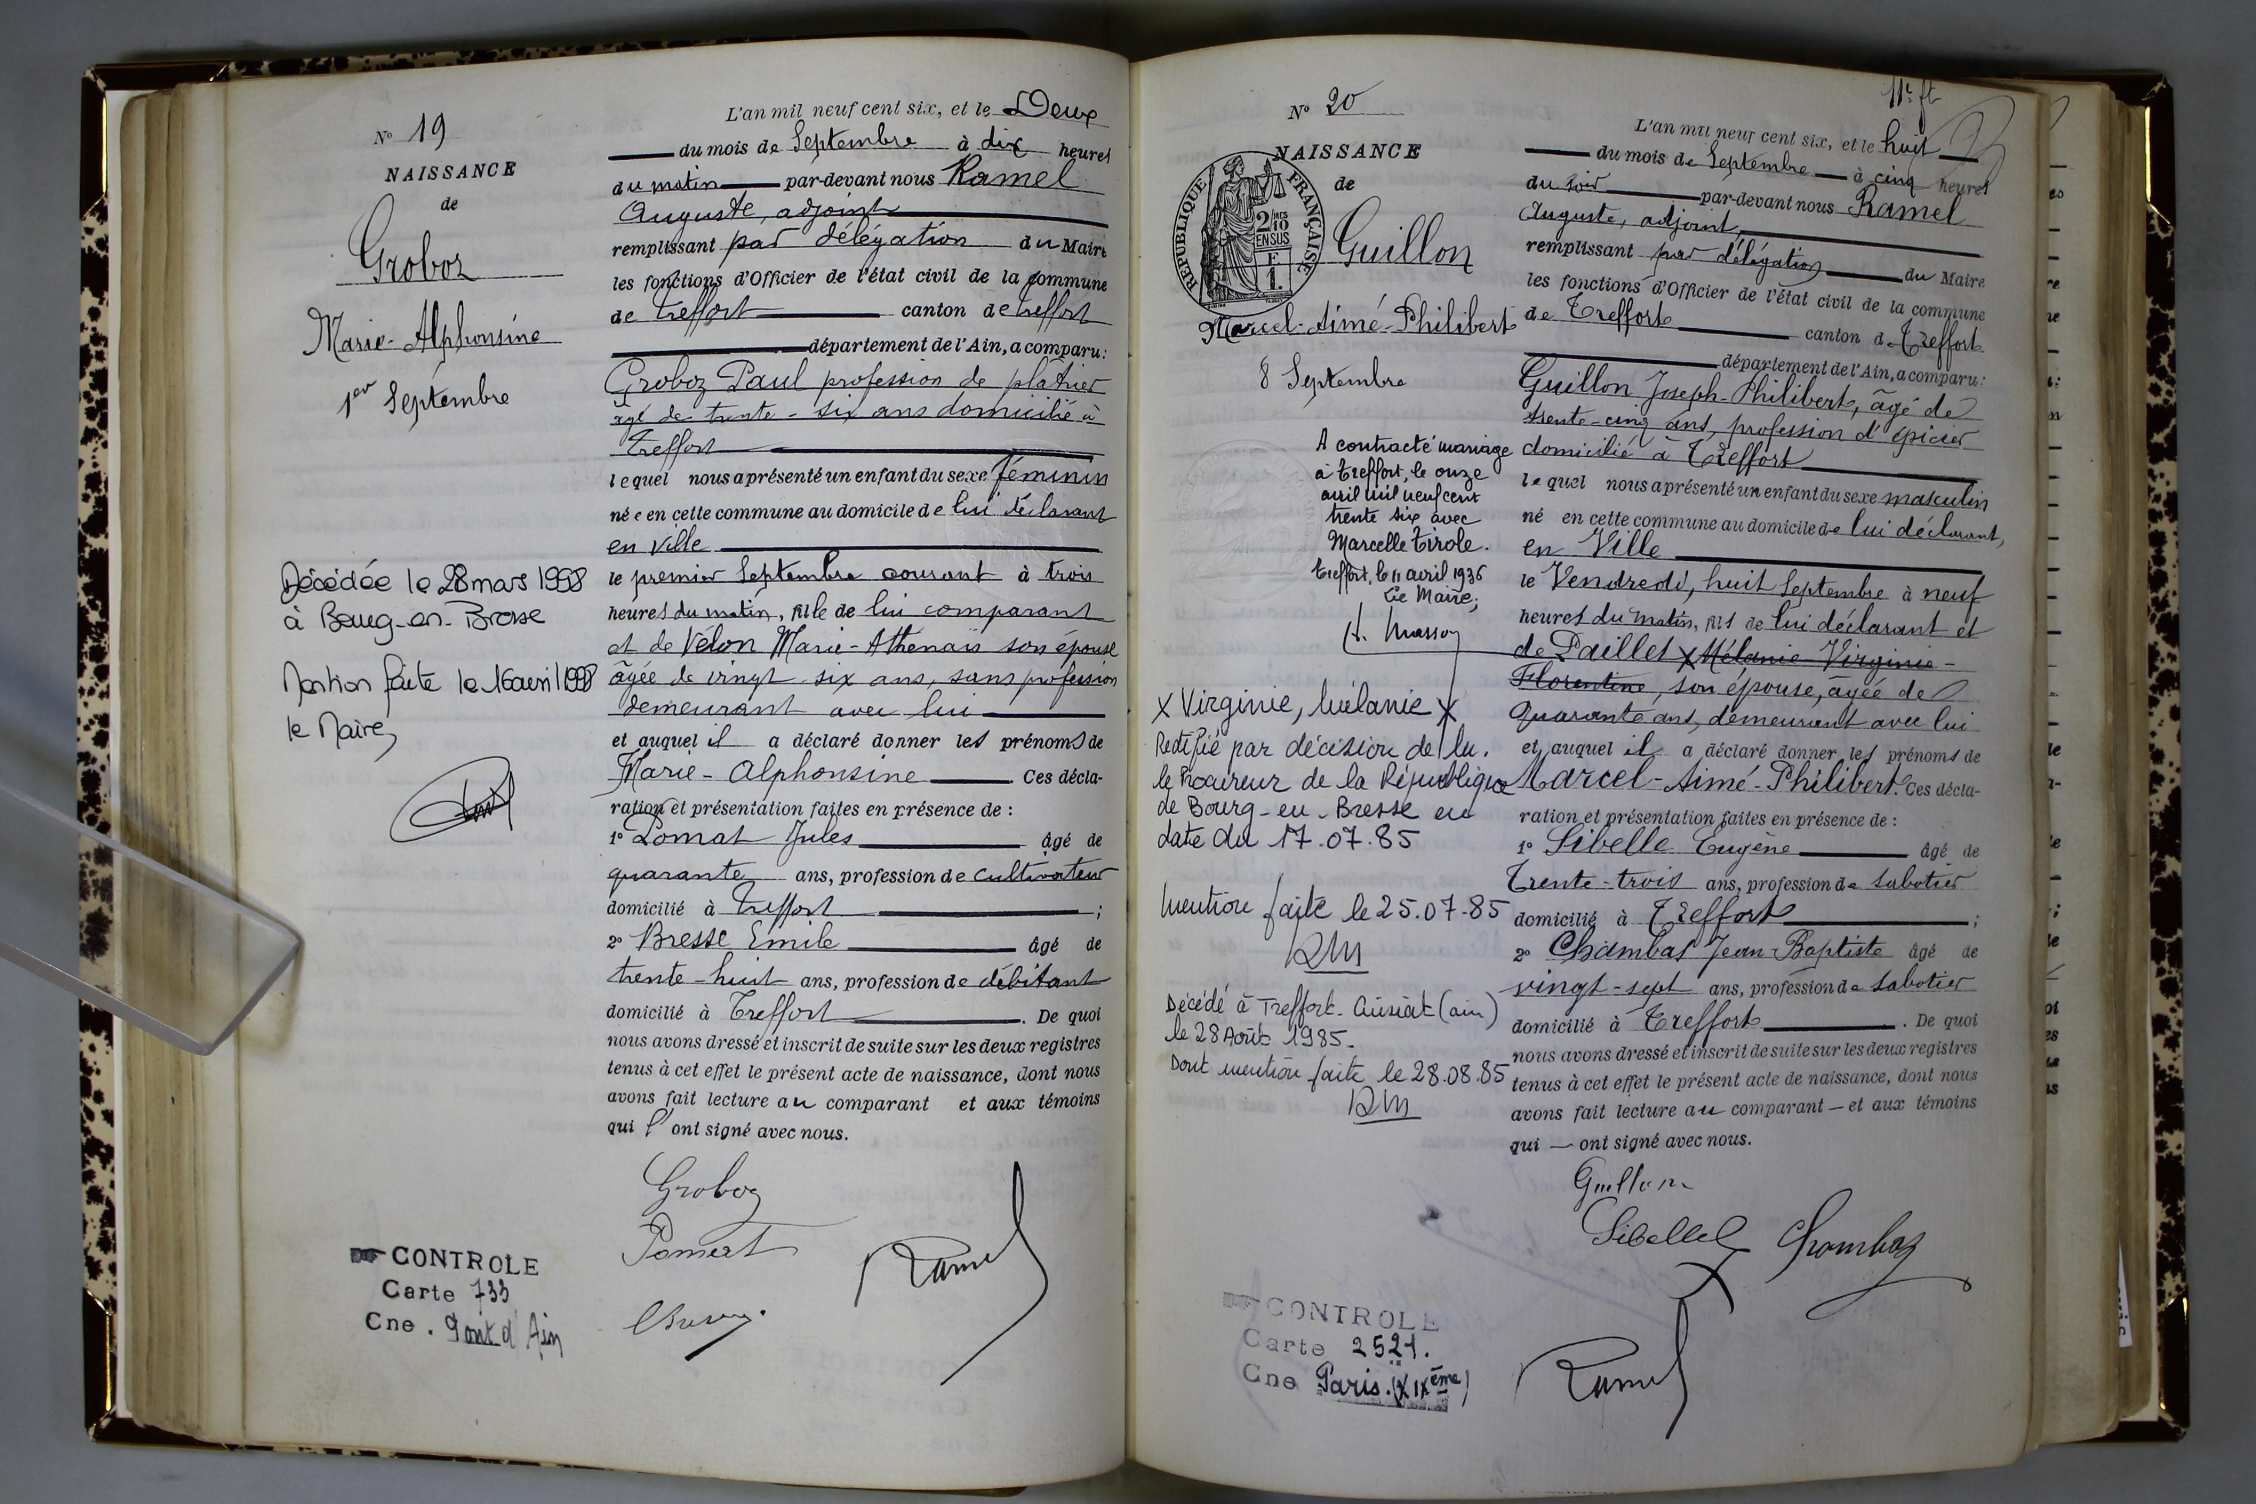 N° 19
NAISSANCE
de
Groboz
Marie-Alphonsine
1er Septembre
Décédée le 28 mars 1998
à Bourg-en-Bresse
Mention faite le 16 avril 1998
le Maire,
CONTROLE
Carte 733
Cne. Pont d'Ain
L'an mil neuf cent six, et le Deux
du mois de Septembre à dix heures
du matin par-devant nous Ramel
Auguste, adjoint
remplissant par délégation du Maire
les fonctions d'Officier de l'état civil de la commune
de Treffort canton de Treffort
département de l'Ain, a comparu:
Groboz Paul profession de plâtrier
âgé de trente-six ans domicilié à
Treffort
lequel nous a présenté un enfant du sexe féminin
née en cette commune au domicile de lui déclarant
en ville
le premier Septembre courant à trois
heures du matin, fille de lui comparant
et de Velon Marie-Athénaïs son épouse
âgée de vingt-six ans, sans profession
demeurant avec lui
et auquel il a déclaré donner les prénoms de
Marie-Alphonsine Ces décla-
ration et présentation faites en présence de :
1° Pomat Jules âgé de
quarante ans, profession de cultivateur
domicilié à Treffort ;
2° Bresse Emile âgé de
trente-huit ans, profession de débitant
domicilié à Treffort . De quoi
nous avons dressé et inscrit de suite sur les deux registres
tenus à cet effet le présent acte de naissance, dont nous
avons fait lecture au comparant et aux témoins
qui l'ont signé avec nous.
Groboz
Pomat
Ramel
N° 20
NAISSANCE
de
RÉPUBLIQUE FRANÇAISE
2/10 EN SUS
F. 1.
Guillon
Marcel-Aimé-Philibert
8 Septembre
A contracté mariage
à Treffort, le onze
avril mil neuf cent
trente six avec
Marcelle Tirole.
Treffort, le 11 avril 1936
Le Maire,
X Virginie, Mélanie X
Rectifié par décision de M.
le Procureur de la République
de Bourg-en-Bresse en
date du 17.07.85
Mention faite le 25.07.85
Décédé à Treffort-Cuisiat (ain)
le 28 Août 1985.
Dont mention faite le 28.08.85
CONTROLE
Carte 2521.
Cne Paris. (XIXème)
11e ft
L'an mil neuf cent six, et le huit
du mois de Septembre à cinq heures
du soir par-devant nous Ramel
Auguste, adjoint,
remplissant par délégation du Maire
les fonctions d'Officier de l'état civil de la commune
de Treffort canton de Treffort
département de l'Ain, a comparu:
Guillon Joseph-Philibert, âgé de
trente-cinq ans, profession d'épicier
domicilié à Treffort
lequel nous a présenté un enfant du sexe masculin
né en cette commune au domicile de lui déclarant,
en Ville
le Vendredi, huit Septembre à neuf
heures du matin, fils de lui déclarant et
de Paillet X Mélanie Virginie-
Florentine, son épouse, âgée de
quarante ans, demeurant avec lui
et auquel il a déclaré donner les prénoms de
Marcel-Aimé-Philibert. Ces décla-
ration et présentation faites en présence de :
1° Sibelle Eugène âgé de
Trente-trois ans, profession de sabotier
domicilié à Treffort ;
2° Chambas Jean-Baptiste âgé de
vingt-sept ans, profession de sabotier
domicilié à Treffort . De quoi
nous avons dressé et inscrit de suite sur les deux registres
tenus à cet effet le présent acte de naissance, dont nous
avons fait lecture au comparant — et aux témoins
qui — ont signé avec nous.
Guillon
Sibelle Chambas
Ramel